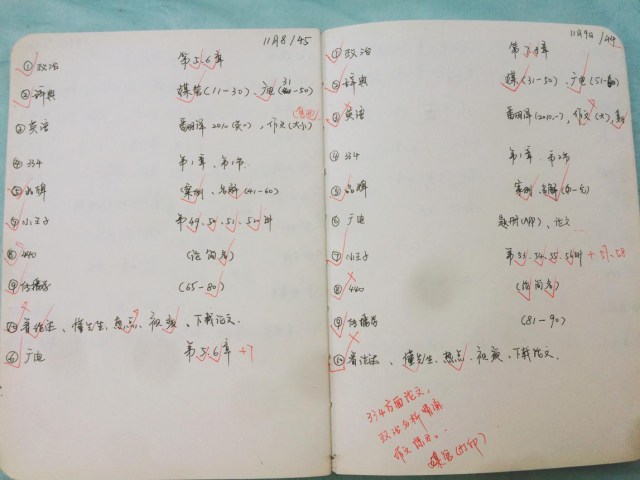 11月8/45
① 政治 第5.6章
② 辞典 媒管(11-30)、广电(31-50)
③ 英语 翻译 2010(英一),作文(大小)
④ 334 第1章、第1节
⑤ 品牌 案例、名解(41-60)
小王子 第49、50、51、52
⑧ 440 (论简名)
⑨ 传播学 (65-80)
⑩ 看论述、懂先生、热点、视频、下载论文.
⑥ 广电 第5.6章 +7
11月9日/44
① 政治 第7.8章
② 辞典 媒(31-50)、广电(51-60)
③ 英语 翻译(2010.一),作文(大)
④ 334 第1章、第2节
⑤ 品牌 案例、名解
⑥ 广电 题册(APP)、论文
⑦ 小王子 第53、54、55、56 +57、58
⑧ 440 (论简名)
⑨ 传播学 (81-90)
⑩ 看论述、懂先生、热点、视频、下载论文.
334方面论文,
政治分析
作文
媒管(打印)